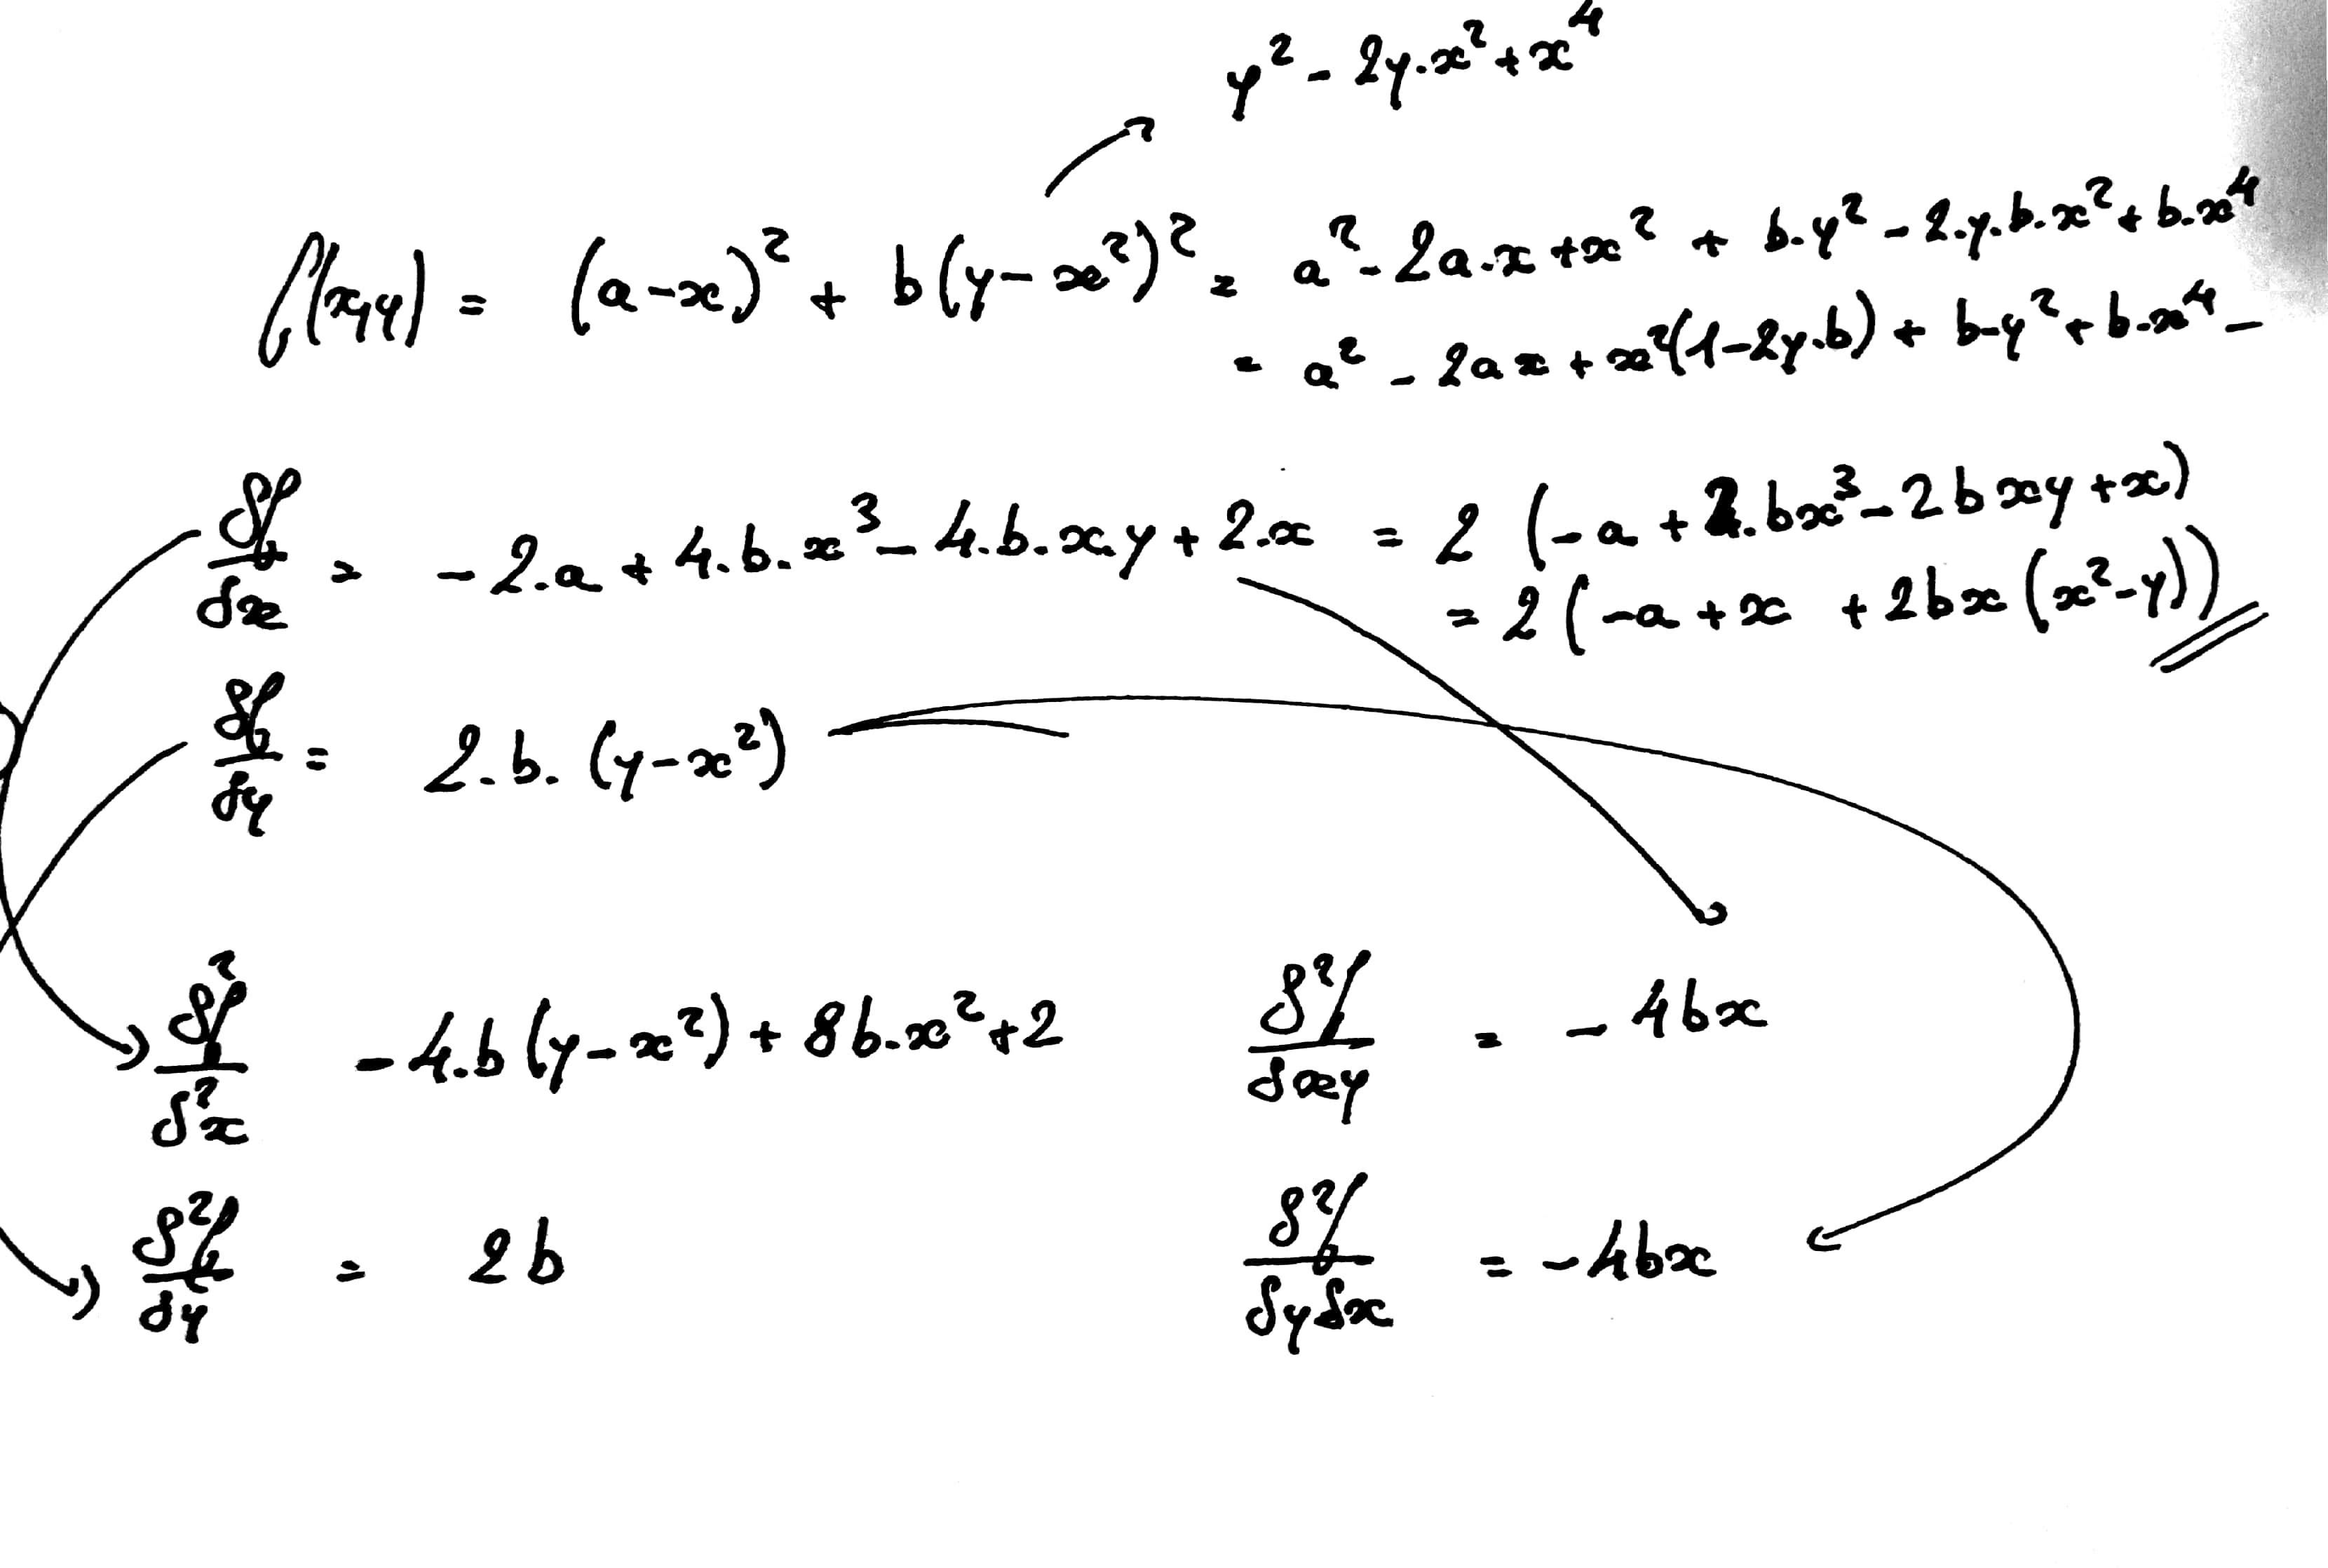 y² - 2y·x² + x⁴
f(x,y) = (a-x)² + b(y-x²)² = a² - 2a·x + x² + b·y² - 2·y·b·x² + b·x⁴
= a² - 2ax + x²(1-2y·b) + b·y² + b·x⁴ -
δf/δx = -2·a + 4·b·x³ - 4·b·x·y + 2·x = 2 (-a + 2·bx³ - 2bxy + x)
= 2 (-a + x + 2bx (x²-y))
δf/δy = 2·b·(y-x²)
δ²f/δ²x -4·b(y-x²) + 8b·x² + 2
δ²f/δxy = -4bx
δ²f/δy² = 2b
δ²f/δyδx = -4bx